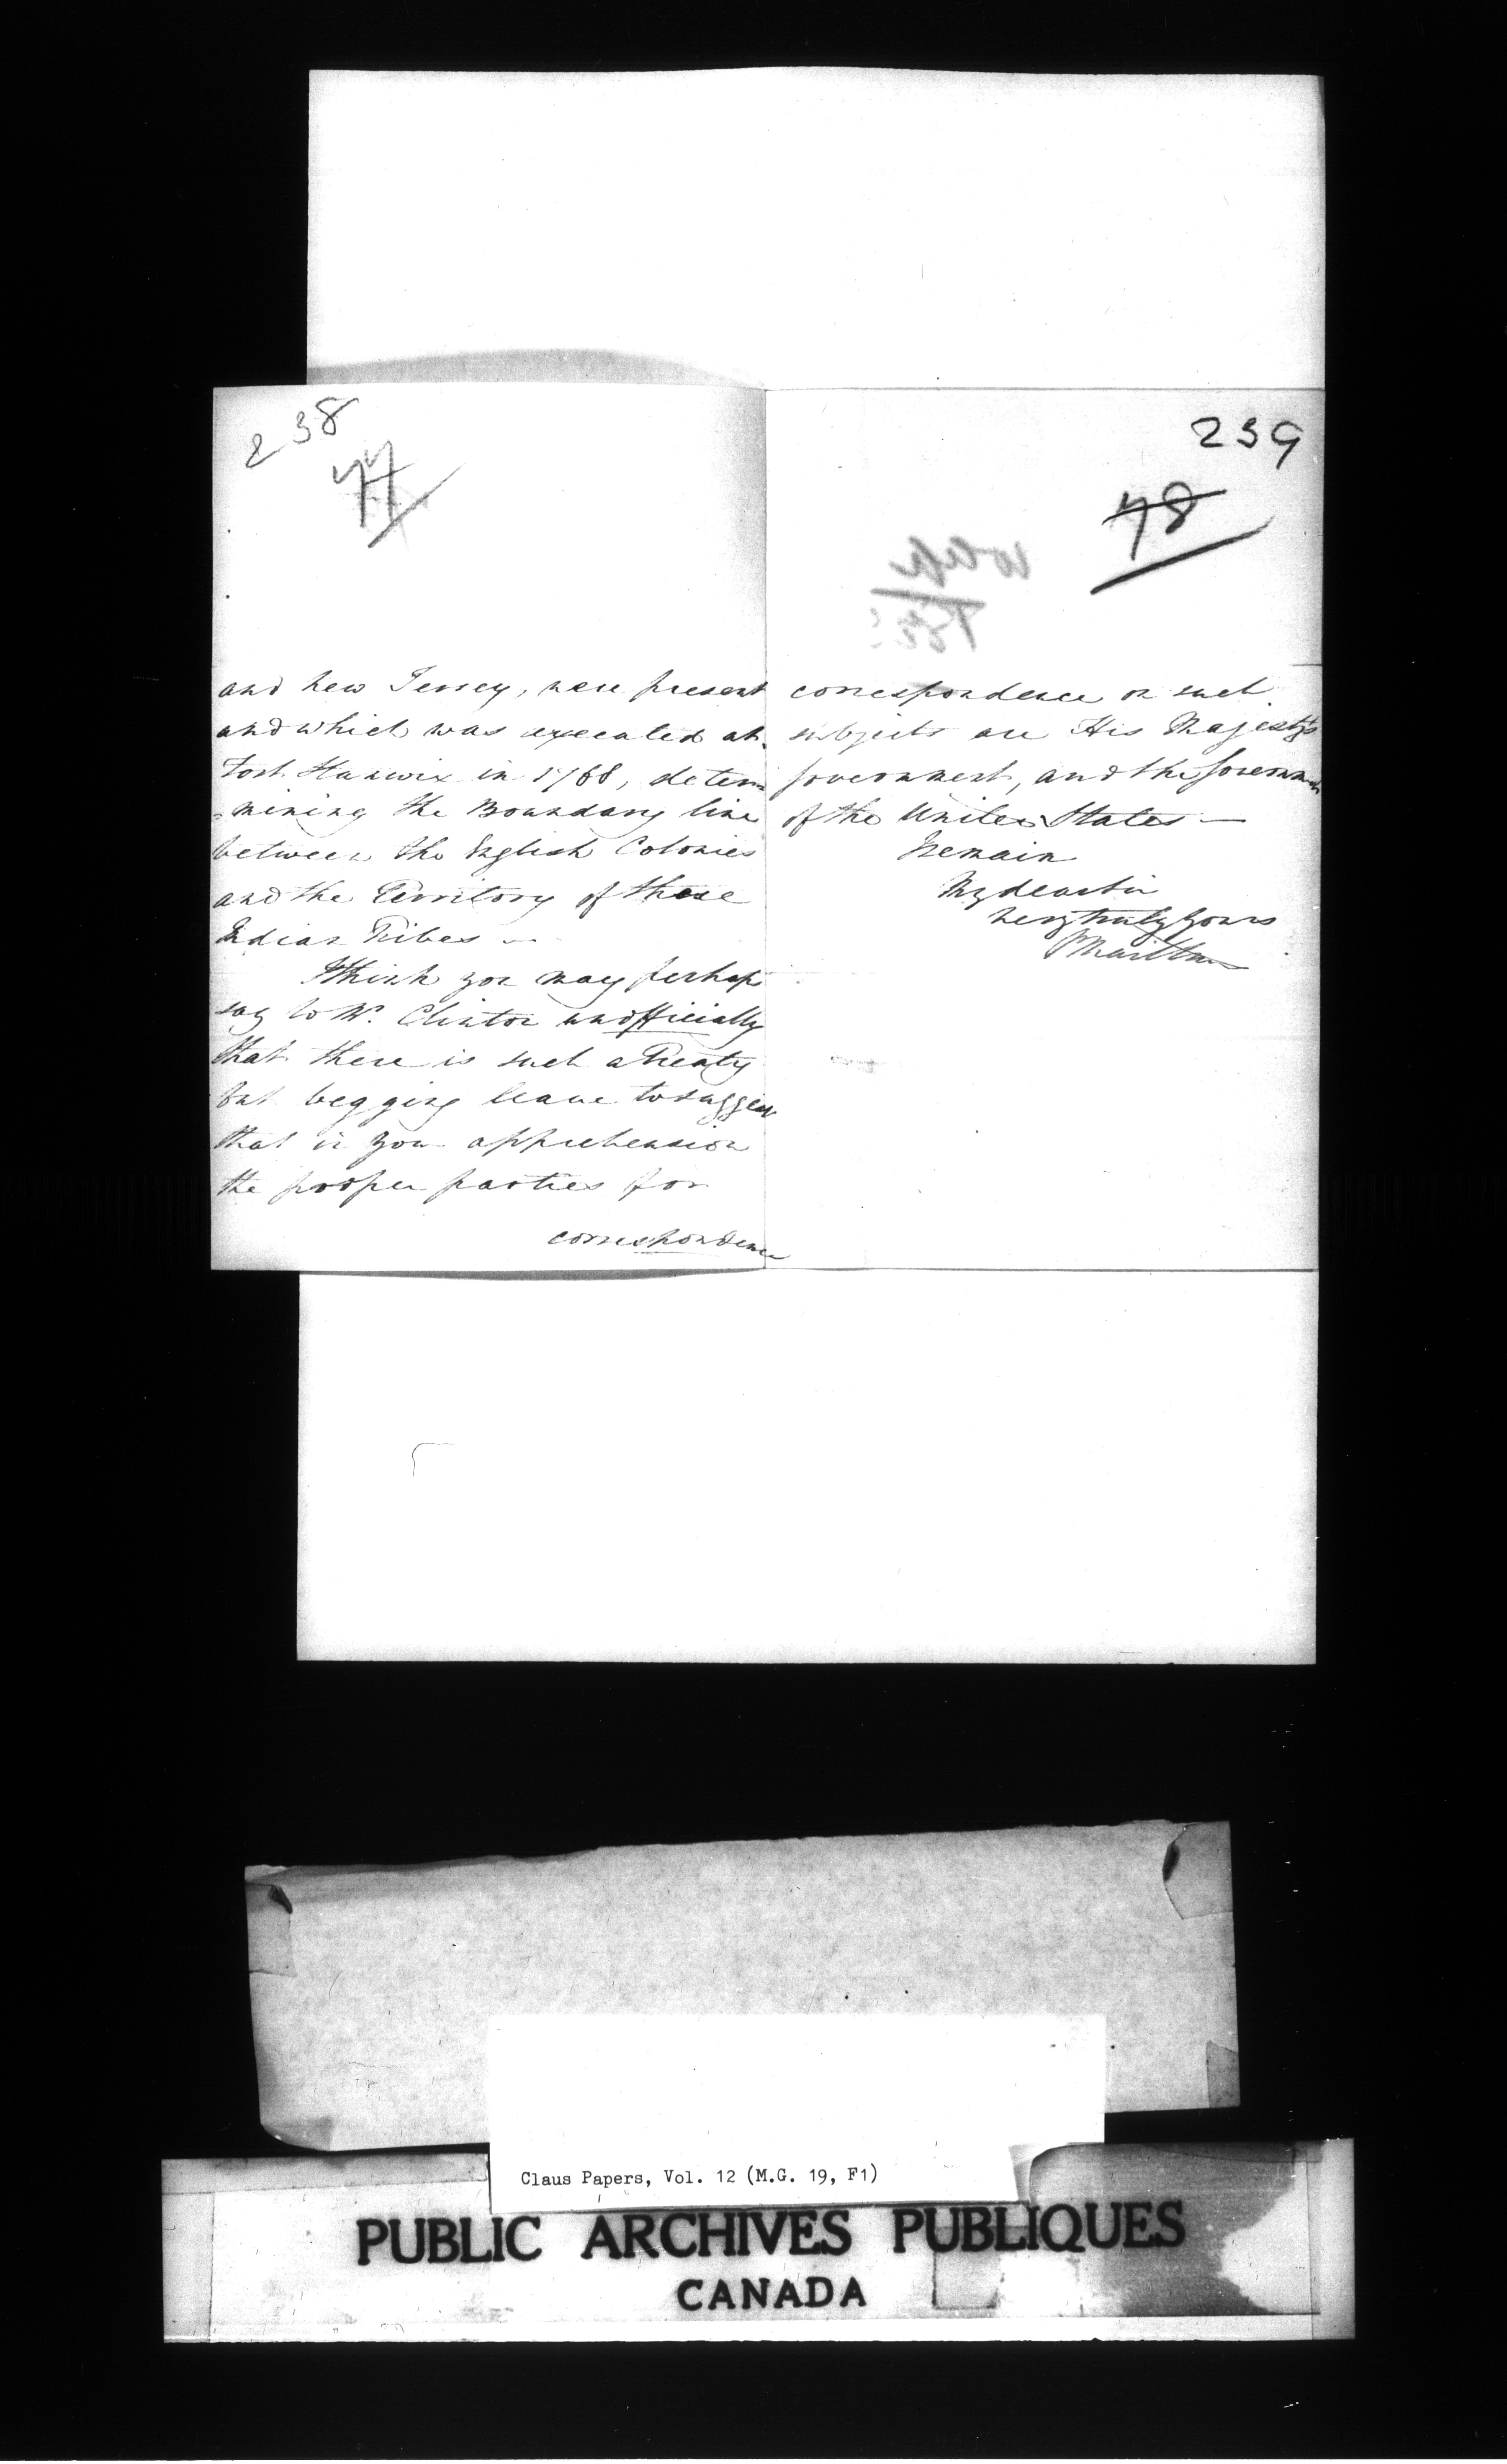 238
77
and new Jersey, were present
and which was executed at
Fort Stanwix in 1768, deter
=mining the Boundary line
between the English Colonies
and the Territory of these
Indian Tribes —
I think you may perhaps
say to Mr. Clinton unofficially
that there is such a Treaty
but begging leave to suggest
that in your apprehension
the proper parties for
correspondence
239
78
correspondence on such
subjects are His Majesty's
Government, and the Government
of the United States —
I remain
My dear Sir
very truly yours
P Maitland
Claus Papers, Vol. 12 (M.G. 19, F1)
PUBLIC ARCHIVES PUBLIQUES
CANADA